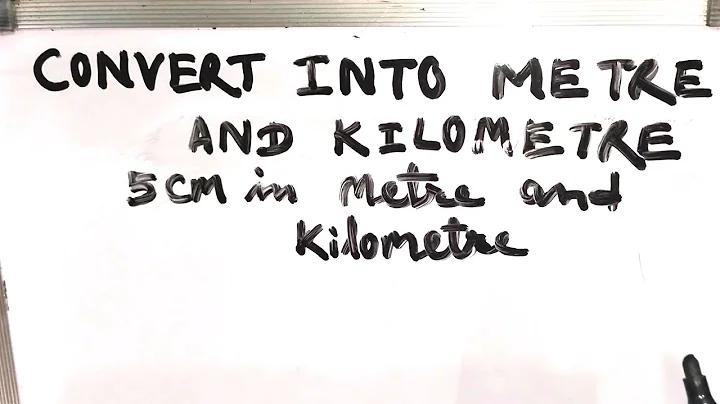 CONVERT INTO METRE
AND KILOMETRE
5cm in Metre and
Kilometre